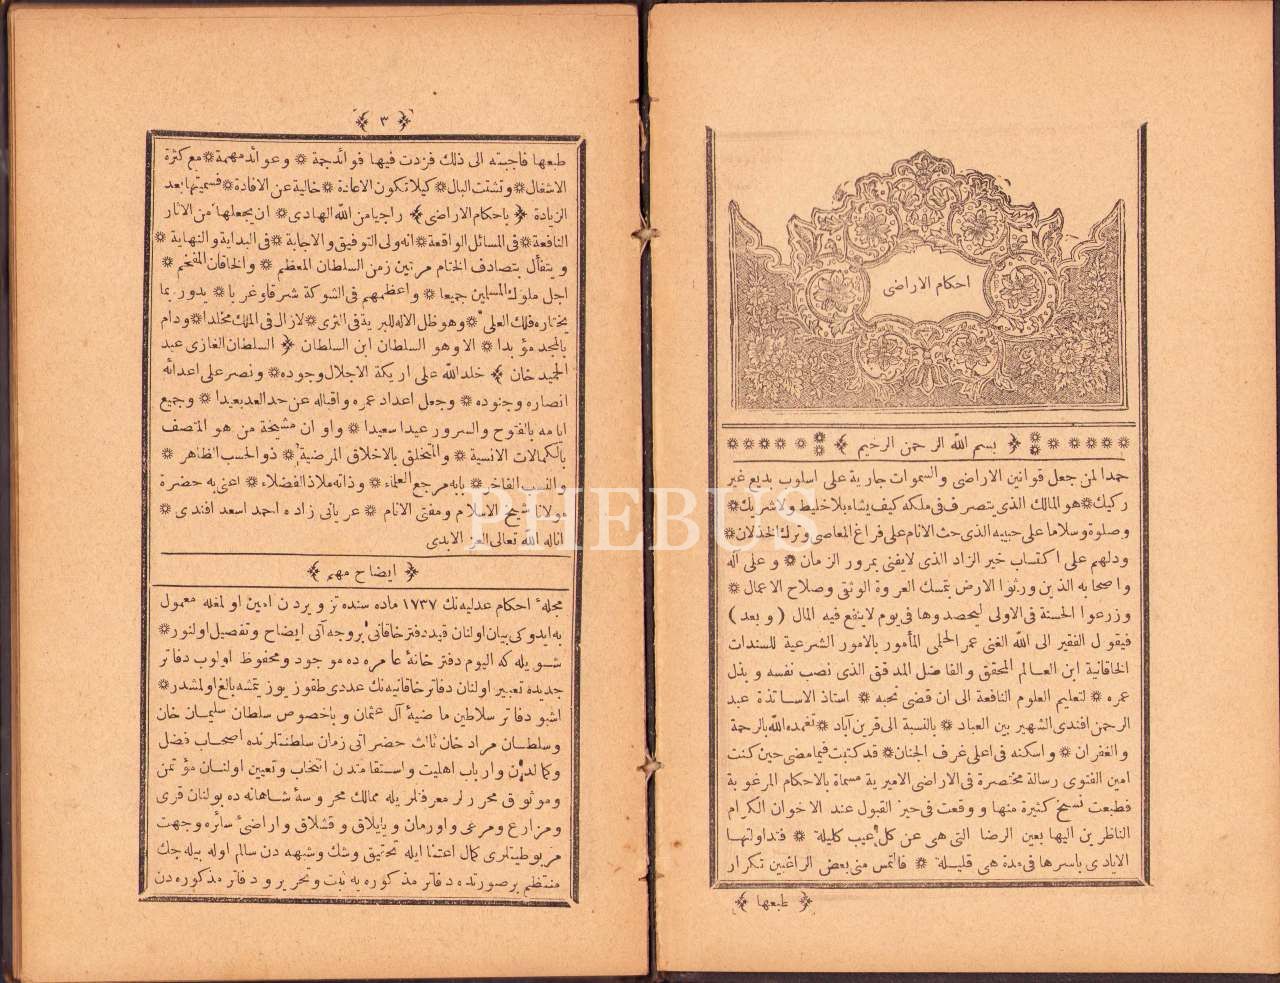 احكام الاراضى
بسم الله الرحمن الرحيم
حمدا لمن جعل قوانين الاراضى والسموات جارية على اسلوب بديع غير
ركيك ❋ هو المالك الذى يتصرف فى ملكه كيف يشاء بلا خليط ولا شريك ❋
وصلوة وسلاما على حبيبه الذى حث الانام على فراغ المعاصى وترك الخذلان ❋
ودلهم على اكتساب خير الزاد الذى لايفنى بمرور الزمان ❋ وعلى آله
واصحابه الذين ورثوا الارض بتمسك العروة الوثقى وصلاح الاعمال ❋
وزرعوا الحسنة فى الاولى ليحصدوها فى يوم لاينفع فيه المال (وبعد)
فيقول الفقير الى الله الغنى عمر الحلمى المأمور بالامور الشرعية للسندات
الخاقانية ابن العالم المحقق والفاضل المدقق الذى نصب نفسه وبذل
عمره ❋ لتعليم العلوم النافعة الى ان قضى نحبه ❋ استاذ الاساتذة عبد
الرحمن افندى الشهير بين العباد ❋ بالنسبة الى قرين آباد ❋ تغمده الله بالرحمة
والغفران ❋ واسكنه فى اعلى غرف الجنان ❋ قد كتبت فيما مضى حين كنت
امين الفتوى رسالة مختصرة فى الاراضى الاميرية مسماة بالاحكام المرغوبة
فطبعت نسخ كثيرة منها ووقعت فى حيز القبول عند الاخوان الكرام
الناظرين اليها بعين الرضا التى هى عن كل عيب كليلة ❋ فتداولتها
الايادى باسرها فى مدة هى قليلة ❋ فالتمس منى بعض الراغبين تكرار
طبعها
٣
طبعها فاجبته الى ذلك فزدت فيها فوائد جمة ❋ وعوائد مهمة ❋ مع كثرة
الاشغال ❋ وتشتت البال ❋ كيلا تكون الاعادة ❋ خالية عن الافادة ❋ فسميتها بعد
الزيادة ﴿ باحكام الاراضى ﴾ راجيا من الله الهادى ❋ ان يجعلها من الاثار
النافعة ❋ فى المسائل الواقعة ❋ انه ولى التوفيق والاجابة ❋ فى البداية والنهاية ❋
ويتفأل بتصادف الختام مرتين زمن السلطان المعظم ❋ والخاقان المفخم ❋
اجل ملوك المسلمين جميعا ❋ واعظمهم فى الشوكة شرقا وغربا ❋ يدور بما
يختاره فلك العلى ❋ وهو ظل الاله للبرية فى الثرى ❋ لازال فى الملك مخلدا ❋ ودام
بالمجد مؤبدا ❋ الا وهو السلطان ابن السلطان ﴿ السلطان الغازى عبد
الحميد خان ﴾ خلد الله على اريكة الاجلال وجوده ❋ ونصر على اعدائه
انصاره وجنوده ❋ وجعل اعداد عمره واقباله عن حد العد بعيدا ❋ وجميع
ايامه بالفتوح والسرور عيدا سعيدا ❋ واوان مشيخة من هو المتصف
بالكمالات الانسية ❋ والمتخلق بالاخلاق المرضية ❋ ذو الحسب الظاهر ❋
والنسب الفاخر ❋ بابه مرجع العلماء ❋ وذاته ملاذ الفضلاء ❋ اعنى به حضرة
مولانا شيخ الاسلام ومفتى الانام ❋ عريانى زاده احمد اسعد افندى ❋
اناله الله تعالى العز الابدى
ايضاح مهم
مجلهٔ احكام عدليه نك ١٧٣٧ ماده سنده تزويردن امين اولمغله معمول
به ايدوكى بيان اولنان قيد دفتر خاقانى بروجه آتى ايضاح وتفصيل اولنور ❋
شويله كه اليوم دفتر خانهٔ عامره ده موجود ومحفوظ اولوب دفاتر
جديده تعبير اولنان دفاتر خاقانيه نك عددى طقوز يوز يتمشه بالغ اولمشدر ❋
اشبو دفاتر سلاطين ماضيهٔ آل عثمان وباخصوص سلطان سليمان خان
وسلطان مراد خان ثالث حضراتى زمان سلطنتلرنده اصحاب فضل
وكمالدن وارباب اهليت واستقامتدن انتخاب وتعيين اولنان مؤتمن
وموثوق محررلر معرفتلريله ممالك محروسهٔ شاهانه ده بولنان قرى
ومزارع ومرعى واورمان ويايلاق وقشلاق واراضئ سائره وجهت
مربوطيتلرى كمال اعتنا ايله تحقيق وشك وشبهه دن سالم اوله بيله جك
منتظم برصورتده دفاتر مذكوره يه ثبت وتحرير ودفاتر مذكوره دن
PHEBUS